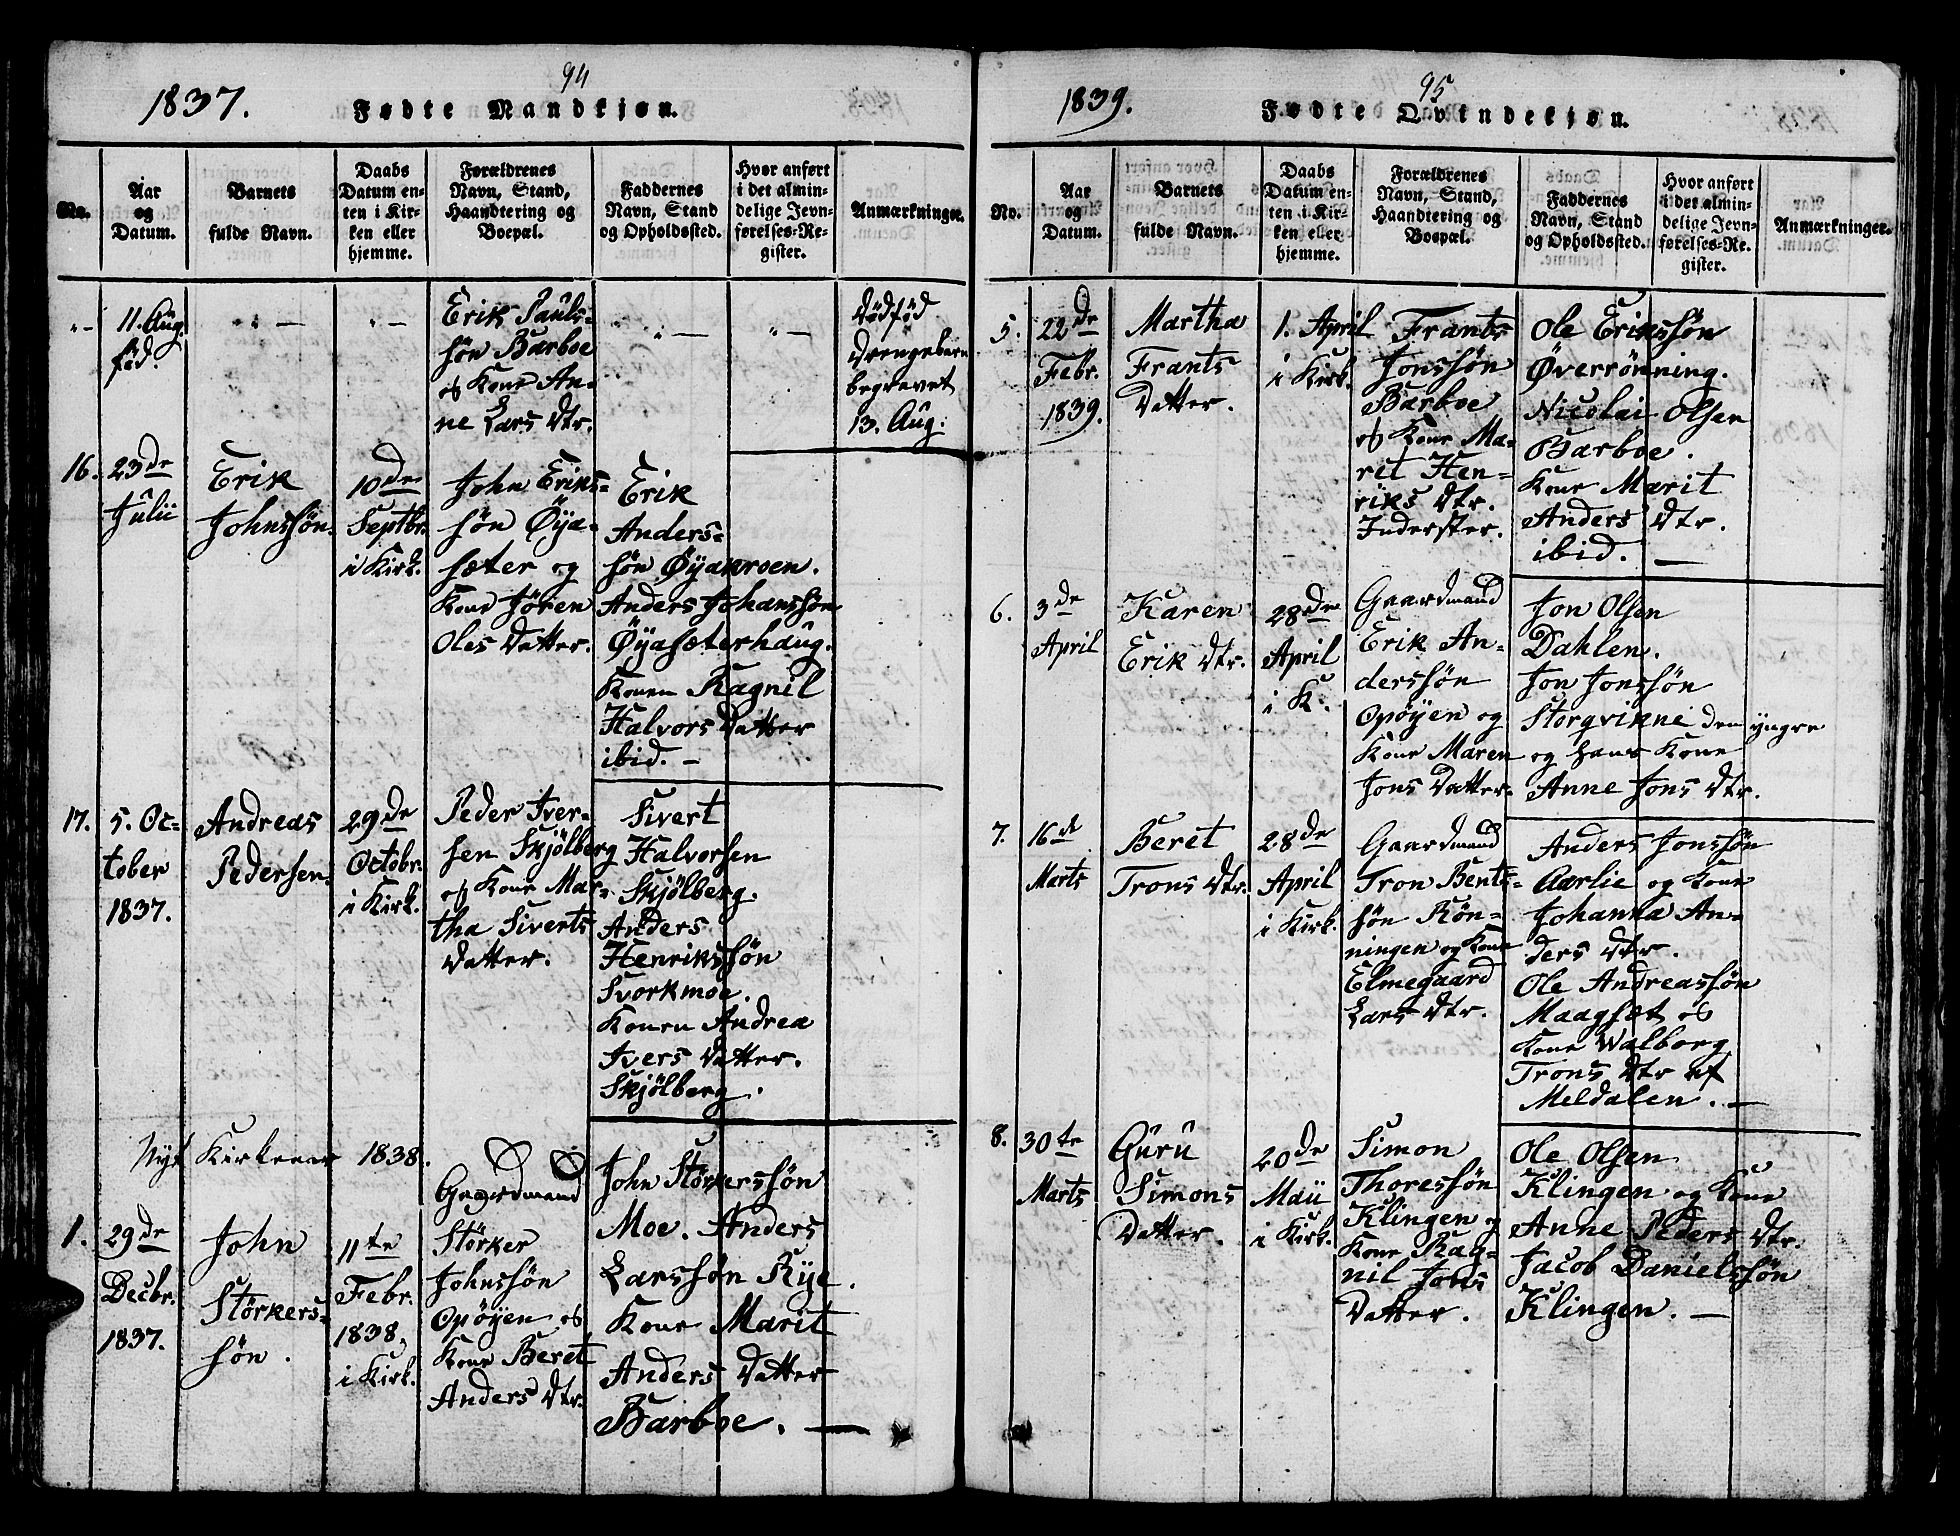 94
1837.
Fødte Mandkjøn.
No.
Aar
og
Datum.
Barnets
fulde Navn.
Daabs
Datum en-
ten i Kir-
ken eller
hjemme.
Forældrenes
Navn, Stand,
Haandtering og
Boepæl.
Faddernes
Navn, Stand
og Opholdssted.
Hvor anført
i det almin-
delige Jevn-
førelses-Re-
gister.
Anmærkninger.
„—
11. Aug.
fød.
„ —
„—
Erik Pauls-
søn Barboe
og Kone An-
ne Lars Dtr.
„ —
„ —
Dödföd
Drengebarn
begravet
13. Aug.
16.
23de
Julii
Erik
Johnssøn.
10de
Septbr.
i Kirk.
John Eriks-
søn Øya-
sæter og
Kone Jören
Oles Datter.
Erik
Anders-
søn Øyakroen.
Anders Johanssøn
Øyasæterhaug.
Konen Ragnil
Halvors Datter
ibid. —
17.
5. Oc-
tober
1837.
Andreas
Pedersen.
29de
Octobr.
i Kirk.
Peder Iver-
sen Skjölberg
og Kone Mar-
tha Siverts
Datter.
Sivert
Halvorsen
Skjölberg.
Anders
Henrikssøn
Svorkmoe.
Konen Andrea
Ivers Datter.
Skjölberg.
Nyt Kirkeaar 1838.
1.
29de
Decbr.
1837.
John
Störkers-
søn.
11te
Febr.
1838,
i Kirk.
Gaardmand
Störker
Johnssøn
Opöyen og
Kone Beret
Anders Dtr.
John Störkerssøn
Moe. Anders
Larssøn Rye.
Kone Marit
Anders Datter
Barboe. —
95
1839.
Fødte Qvindekjøn.
No.
Aar
og
Datum.
Barnets
fulde Navn.
Daabs
Datum en-
ten i Kir-
ken eller
hjemme.
Forældrenes
Navn, Stand,
Haandtering og
Boepæl.
Faddernes
Navn, Stand
og Opholdssted.
Hvor anført
i det almin-
delige Jevn-
førelses-Re-
gister.
Anmærkninger.
5.
22de
Febr.
1839.
Martha
Frants
Datter.
1. April
i Kirk.
Frants
Jonssøn
Barboe
og Kone Ma-
ret Hen-
riks Dtr.
Inderster.
Ole Erikssøn
Øverrönning.
Nicolai Olsen
Barboe.
Kone Marit
Anders Dtr.
ibid. —
6.
3de
April
Karen
Erik Dtr.
28de
April
i K.
Gaardmand
Erik An-
derssøn
Opöyen og
Kone Maren
Jons Datter.
Jon Olsen
Dahlen.
Jon Jonssøn
Storqvinne den yngre
og hans Kone
Anne Jons Dtr.
7.
16de
Marts
Beret
Trons Dtr.
28de
April
i Kirk.
Gaardmand
Tron Bents-
søn Rön-
ningen og Kone
Elmegaard
Lars Dtr.
Anders Jonssøn
Aarlie og Kone
Johanna An-
ders Dtr.
Ole Andreassøn
Maagsæt og
Kone Walborg
Trons Dtr af
Meldalen. —
8.
30te
Marts
Guru
Simons
Datter.
20de
Maii
i Kirk.
Simon
Thoressøn
Klingen og
Kone Rag-
nil Jons
Datter.
Ole Olsen
Klingen og Kone
Anne Peders Dtr.
Jacob Danielssøn
Klingen. —